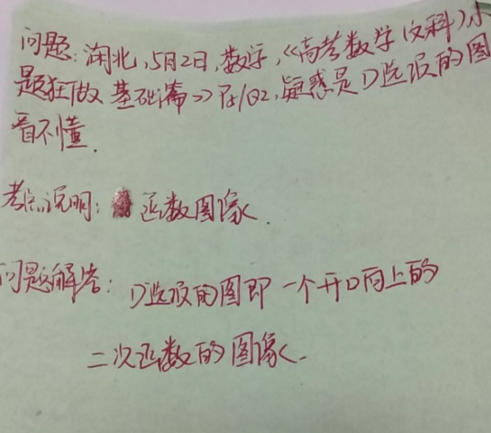 问题:湖北,5月2日,数学,《高考数学(文科)小
题狂做 基础篇》P102,疑惑是D选项的图
看不懂.
考点说明: 函数图像.
问题解答: D选项的图即一个开口向上的
二次函数的图像.